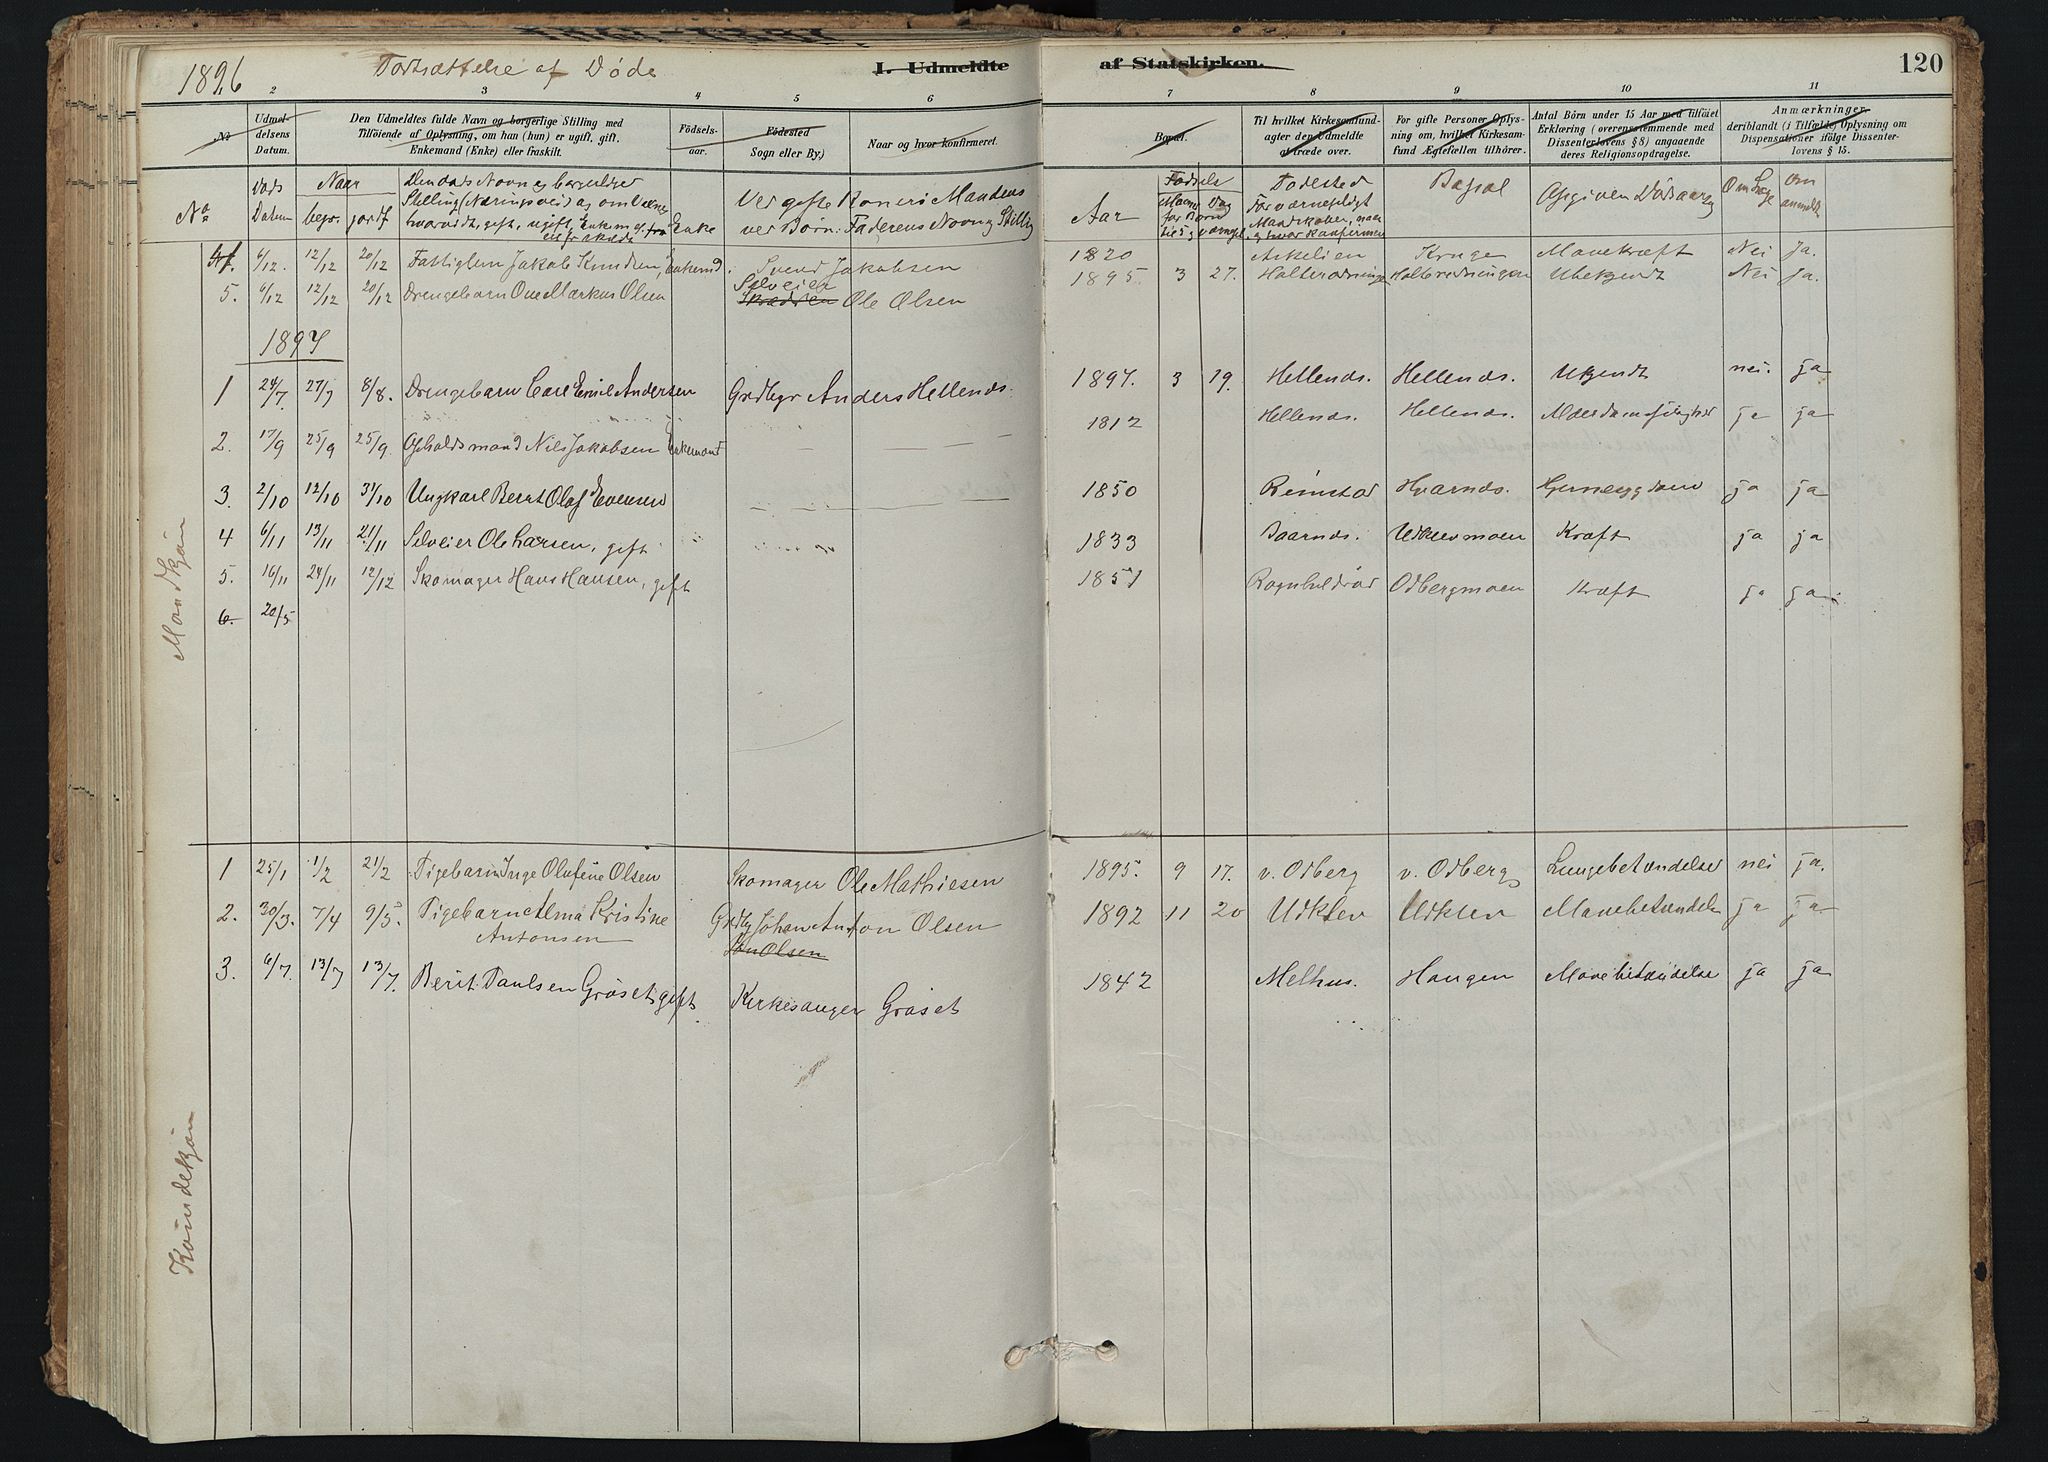 1896 Fortsættelse af Døde
I. Udmeldte af Statskirken. 120
2 3 4 5 6 7 8 9 10 11
No
Udmeldelsens Datum.
Den Udmeldtes fulde Navn og borgerlige Stilling med
Tilföiende af Oplysning, om han (hun) er ugift, gift.
Enkemand (Enke) eller fraskilt.
Födselsaar.
Födested
Sogn eller By.)
Naar og hvor konfirmeret.
Bopæl.
Til hvilket Kirkesamfund
agter den Udmeldte
at træde over.
For gifte Personer Oplysning
om, hvilket Kirkesamfund
Ægtefællen tilhörer.
Antal Börn under 15 Aar med tilföiet
Erklæring (overensstemmende med
Dissenterlovens § 8) angaaende
deres Religionsopdragelse.
Anmærkninger,
deriblandt (i Tilfælde) Oplysning om
Dispensationer ifölge Dissenterlovens
§ 15.
No Døds Datum Naar begr. jordf
Den dødes Navn og borgerlige
Stilling (Næringsvei) og om
hvorvidt gift, ugift, Enkem el Enke
Ved gifte Koner: Mandens
ved Børn: Faderens Navn og Stilling
Aar Fødsels Maaned Dag for Børn
Dødested For værnepligt Mandskaber, naar og hvor konfirm
Bopæl Opgiven Dødsaarsag Om Læge Om anmeldt
4. 6/12. 12/12 20/12 Fattiglem Jakob Knudsen, Enkemd. Svend Jakobsen 1820 Krage Mavekræft Nei Ja.
5. 6/12 12/12 20/12 Drengebarn Ove Markus Olsen Selveier Ole Olsen 1895 3 27. Ubekjendt Nei Ja.
1897
1 24/7. 27/7 8/8. Drengebarn Carl Emil Andersen Grdbgr Anders Hellends. 1897. 3 19. Hellends. Hellends. Ukjendt nei. ja
2. 17/9 25/9 25/9 Opholdsmand Nils Jakobsen Enkemand 1812 Hellends. Hellends. ja ja
3. 2/10 12/10 31/10 Ungkarl Bernt Olaf Evensen 1850 Hjernesygdom ja ja
4 6/11 13/11 21/11 Selveier Ole Larsen, gift 1833 Udklevmoen Kræft ja ja
5. 16/11 24/11 12/12 Skomager Hans Hansen, gift 1851 Odbergmoen Kræft ja ja.
6. 20/5
Mandkjøn
1 25/1 1/2 21/2 Pigebarn Inge Olufine Olsen Skomager Ole Mathiesen 1895. 9 17. v. Odberg v. Odberg Lungebetændelse nei ja.
2. 30/3. 7/4 9/5. Pigebarn Alma Kristine Grdbg Johan Anton Olsen 1892 11 20 Udklev Udklev Mavebetændelse ja ja
Antonsen
3. 6/7. 13/7 13/7. Berit Paulsen Gråset gift Kirkesanger Gråset 1842 Melhus. Haugen Mavebetændelse ja ja
Kvindekjøn